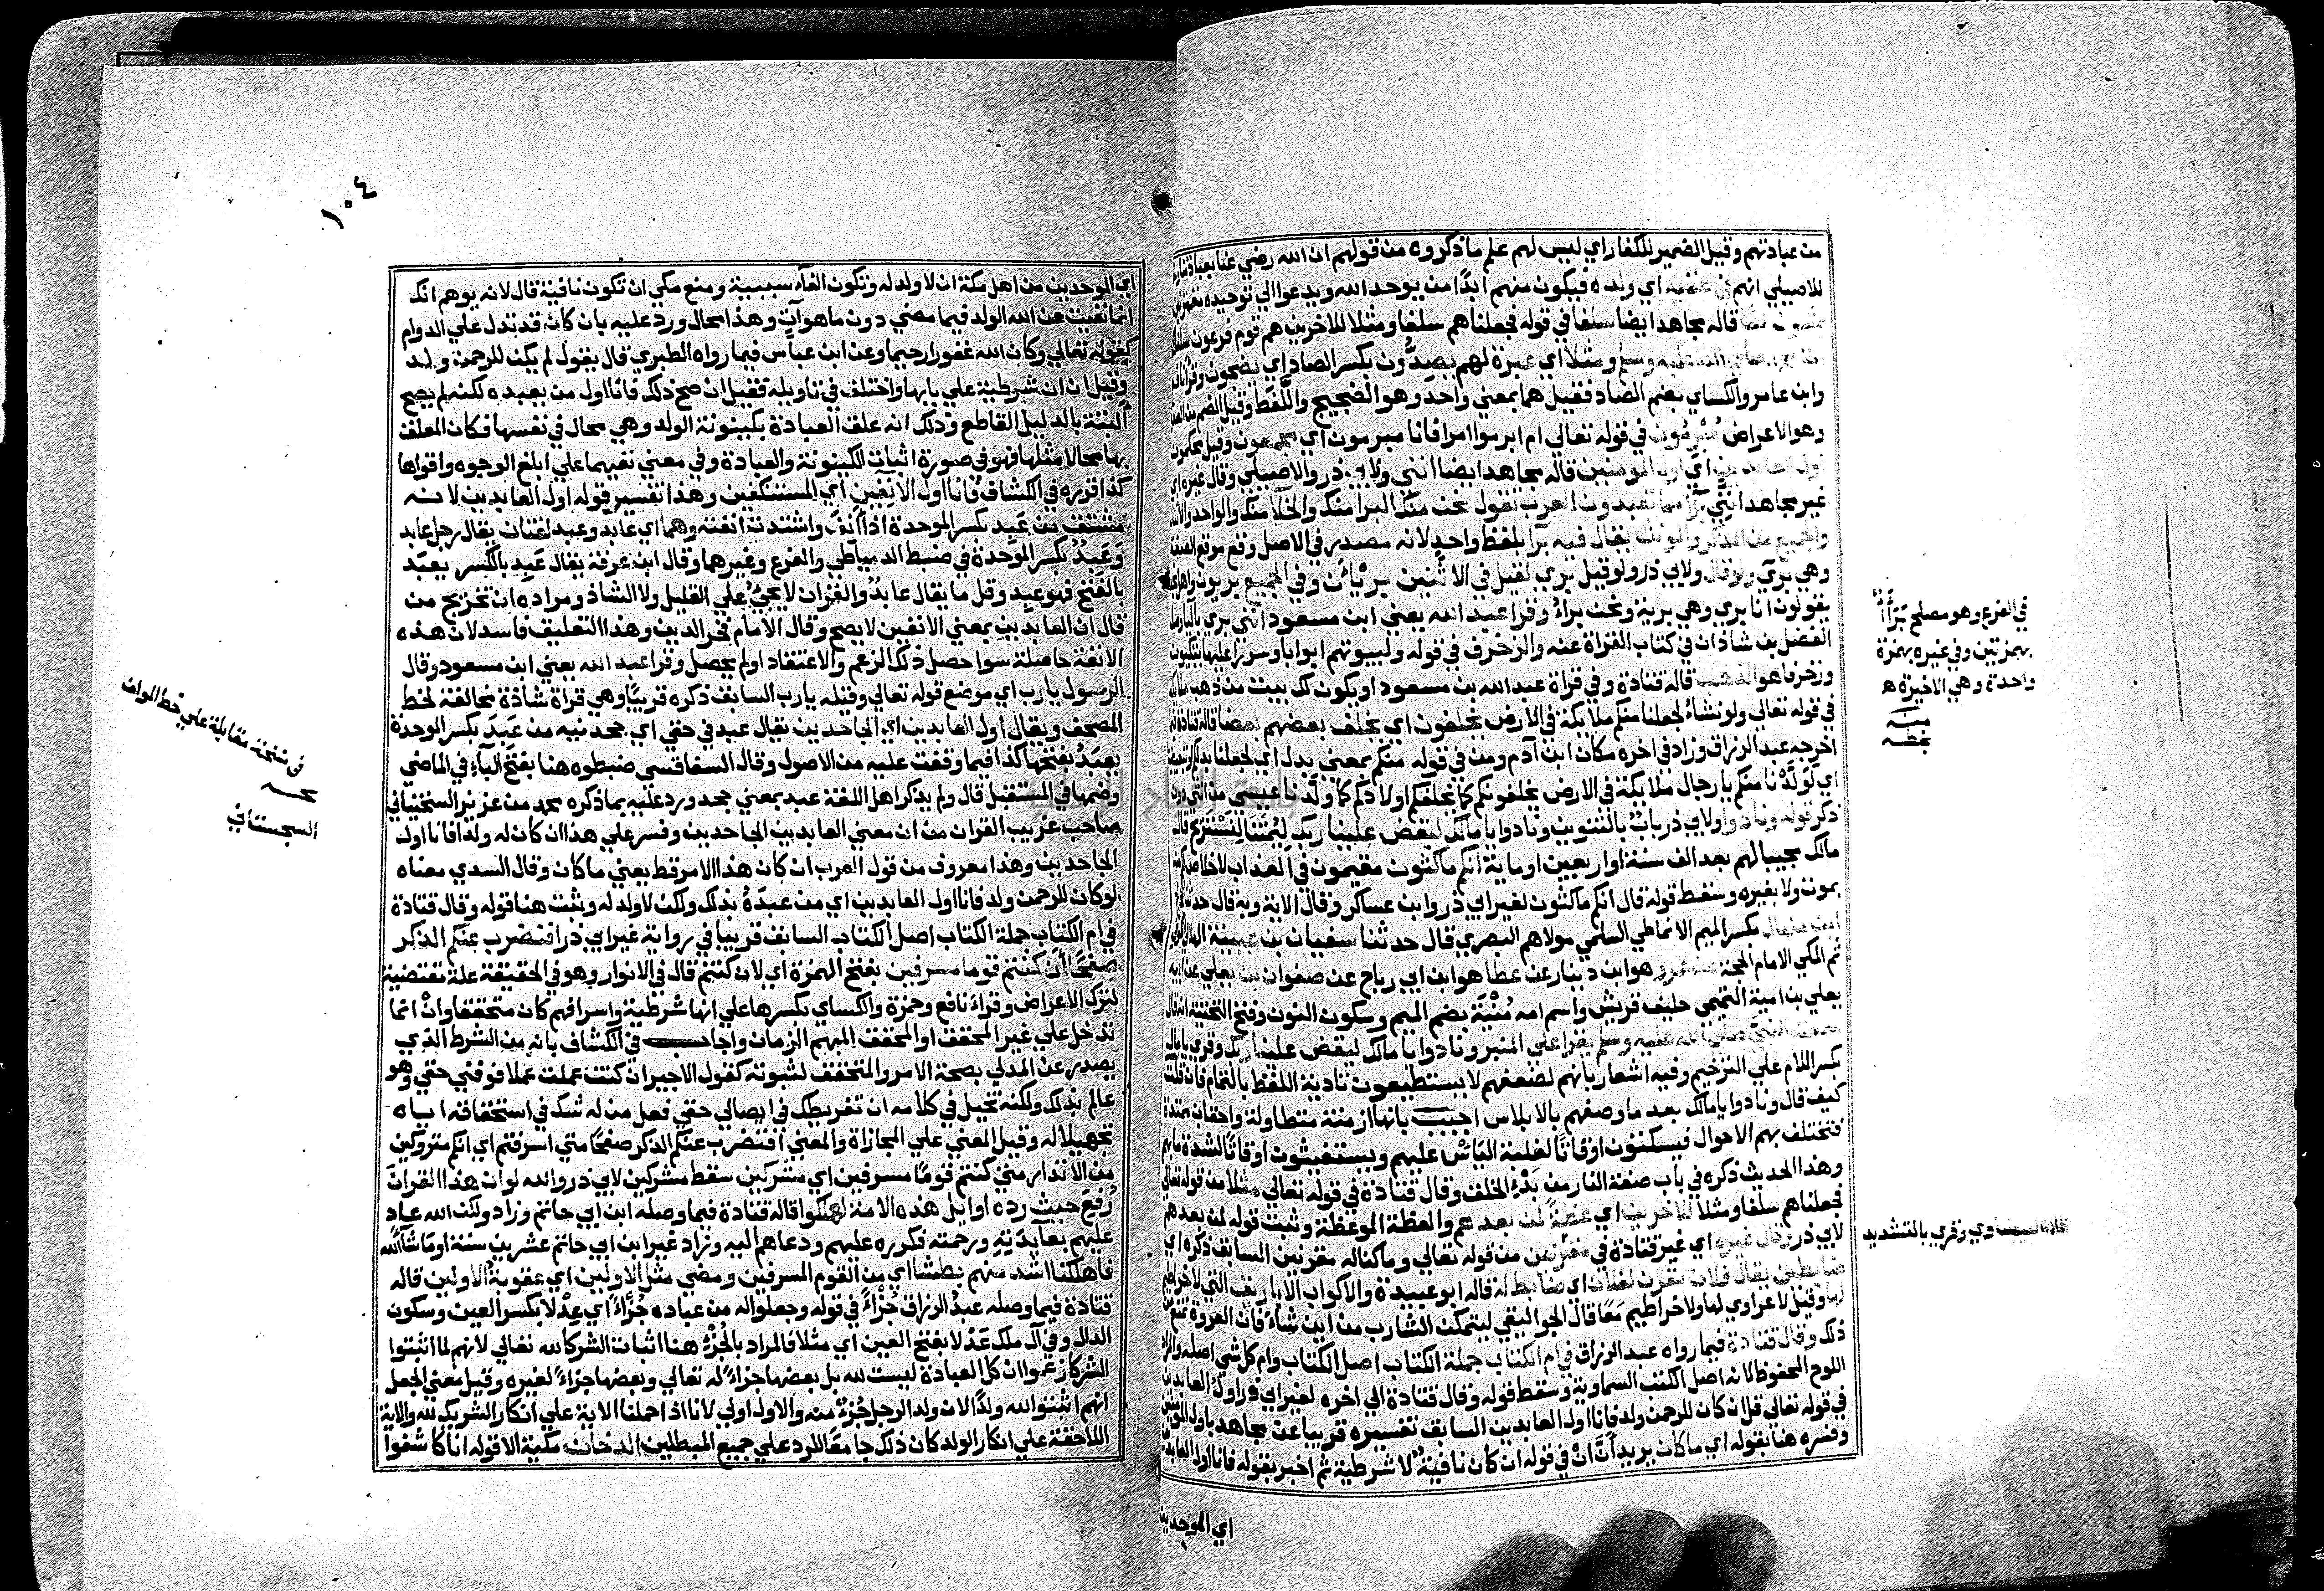 من عبادتهم وقيل الضمير للكفار اي ليس لهم علم ما ذكروه من قولهم ان الله رضي عنا بعبادتنا
للاصيلي انهم في عقبه اي ولده فيكون منهم ابدًا من يوحد الله ويدعوا الي توحيده
قاله مجاهد ايضا سلفا في قوله فجعلناهم سلفا ومثلا للاخرين هم قوم فرعون
صلي الله عليه وسلم ومثلا اي عبرة لهم يصدُّون بكسر الصاد اي يضجون
وابن عامر والكساي بضم الصاد فقيل هما بمعني واحد وهو الضجيج واللَّغَط وقيل الضم من
وهو الاعراض مُبْرِمُون في قوله تعالي ام ابرموا امرا فانا مبرمون اي مجمعون وقيل محكمون
اول العابدين اي اول المومنين قاله مجاهد ايضا انني ولابي ذر والاصيلي وقال غيره اي
غير مجاهد انني برآ مما تعبدون العرب تقول نحن منك البرا منك والخلا منك والواحد
والجميع من المذكر والمونث يقال فيه برآ بلفظ واحد لانه مصدر في الاصل وقع موقع الصفة
وهي بري ولو قال ولابي ذر ولو قيل بري لقيل في الاثنين بريئان وفي الجميع بريون
يقولون انا بري وهي برية ونحن براءٌ وقرا عبد الله يعني ابن مسعود انني بري بالياء
الفضل بن شاذان في كتاب القراة عنه والزخرف في قوله ولبيوتهم ابوابا وسررا عليها يتكيون
وزخرفا هو الذهب قاله قتادة وفي قراة عبد الله بن مسعود او يكون لك بيت من ذهب
في قوله تعالي ولو نشاءُ لجعلنا منكم ملايكة في الارض يخلفون اي يخلف بعضهم بعضا قاله قتادة
اخرجه عبد الرزاق وزاد في اخره مكان ابن آدم ومن في قوله منكم بمعني بدل اي لجعلنا بدلكم
اي لَوَلَّدْنا منكم يا رجال ملايكة في الارض يخلفونكم كما يخلفكم اولادكم كما ولدنا عيسي من انثي دون
ذكر قوله ونادوا ولابي ذر بابٌ بالتنوين ونادوا يا مالك ليقض علينا ربك لِيُمِتْنَا لِنَسْتَرِيح قال
مالك مجيبا لهم بعد الف سنة او اربعين او ماية انكم ماكثون مقيمون في العذاب لاخلاص لكم
بموت ولا بغيره وسقط قوله قال انكم ماكثون لغير ابي ذر وابن عساكر وقال الاية وبه قال حدثنا
ابن منهال بكسر الميم الانماطي السلمي مولاهم البصري قال حدثنا سفيان بن عيينة
ثم المكي الامام الحجة عن عمرو هو ابن دينار عن عطا هو ابن ابي رباح عن صفوان بن يعلي عن ابيه
يعلي بن امية التميمي حليف قريش واسم امه مُنْيَة بضم الميم وسكون النون وفتح التحتية انه قال
سمعت النبي صلي الله عليه وسلم يقرا علي المنبر ونادوا يا مالك ليقض علينا ربك وقري يا مال
بكسر اللام علي الترخيم وفيه اشعار بانهم لضعفهم لا يستطيعون تادية اللفظ بالتمام فان قلت
كيف قال ونادوا يا مالك بعد ما وصفهم بالابلاس اجيب بانها ازمنة متطاولة واحقاب ممتدة
فتختلف بهم الاحوال فيسكتون اوقاتًا لغلبة اليَاسْ عليهم ويستغيثون اوقاتًا لشدة ما بهم
وهذا الحديث ذكره في باب صفة النار من بَدْءِ الخلق وقال قتادة في قوله تعالي مثلا من قوله تعالي
فجعلناهم سلفا ومثلا للاخرين اي عظةً لمن بعدهم والعظة الموعظة وثبت قوله لمن بعدهم
لابي ذر وقال غيره اي غير قتادة في مقرّنين من قوله تعالي وما كنا له مقرنين السابق ذكره اي
ضابطين يقال فلان مقرن لفلان اي ضابط له قاله ابو عبيدة والاكواب الاباريق التي لا خراطيم
لها وقيل لا عراوي لها ولا خراطيم مَعًا قال الجواليقي ليتمكن الشارب من اين شاءَ فان العروة تمنع
ذلك وقال قتادة فيما رواه عبد الرزاق في ام الكتاب جملة الكتاب اصل الكتاب وام كل شي اصله
اللوح المحفوظ لانه اصل الكتب السماوية وسقط قوله وقال قتادة الي اخره لغير ابي ذر اول العابدين
في قوله تعالي قل ان كان للرحمن ولد فانا اول العابدين السابق تفسيره قريبا عن مجاهد باول
وفسره هنا بقوله اي ما كان يريد اَنَّ اِنْ في قوله ان كان نافيةٌ لا شرطية ثم اخبر بقوله فانا اول
اي الموحدين
في الفرع وهو مصلح بَرَأءٌ
بهمزتين وفي غيره بهمزة
واحدة وهي الاخيرة ه
منه
بخطه
وقري بالتشديد
١٠٤
اي الموحدين من اهل مكة ان لا ولد له وتكون الفآء سببية ومنع مكي ان تكون نافية قال لانه يوهم انك
انما نفيت عن الله الولد فيما مضي دون ما هو آتٍ وهذا محال ورد عليه بان كان قد تدل علي الدوام
كقوله تعالي وكان الله غفورا رحيما وعن ابن عباس فيما رواه الطبري قال يقول لم يكن للرحمن ولد
وقيل ان ان شرطية علي بابها واختلف في تاويله فقيل ان صح ذلك فانا اول من يعبده لكنه لم يصح
البتة بالدليل القاطع وذلك انه علق العبادة بكينونة الولد وهي محال في نفسها فكان المعلق
بها محالا مثلها فهو في صورة اثبات الكينونة والعبادة وفي معني نفيهما علي ابلغ الوجوه واقواها
كذا قرره في الكشاف فانا اول الانفين اي المستنكفين وهذا تفسير قوله اول العابدين لانه
مشتق من عَبِد بكسر الموحدة اذا أَنِفَ واشتدت انفته وهما اي عابد وعبد لغتان يقال رجل عابد
وَعَبِدٌ بكسر الموحّدة في ضبط الدمياطي والفرع وغيرهما وقال ابن عرفة يقال عَبِد بالكسر يعبَد
بالفتح فهو عبد وقل ما يقال عابدٌ والقران لا يجيُ علي القليل ولا الشاذ ومراده ان تخريج من
قال ان العابدين بمعني الانفين لا يصح وقال الامام فخر الدين وهذا التعليق فاسد لان هذه
الانفة حاصلة سوا حصل ذلك الزعم والاعتقاد او لم يحصل وقرا عبد الله يعني ابن مسعود وقال
الرسول يا رب اي موضع قوله تعالي وقيله يا رب السابق ذكره قريبًا وهي قراة شاذة مخالفة لخط
المصحف ويقال اول العابدين اي الجاحدين يقال عبد في حقي اي جحدنيه من عَبَدَ بكسر الموحدة
يعبَدُ بفتحها كذا فيما وقفت عليه من الاصول وقال السفاقسي ضبطوه هنا بفتح الباءِ في الماضي
وضمها في المستقبل قال ولم يذكر اهل اللغة عبد بمعني جحد ورد عليه بما ذكره محمد من عزيز السختياني
صاحب غريب القران من ان معني العابدين الجاحدين وفسر علي هذا ان كان له ولد فانا اول
الجاحدين وهذا معروف من قول العرب ان كان هذا الامر قط يعني ما كان وقال السدي معناه
لو كان للرحمن ولد فانا اول العابدين اي من عبدَهُ بذلك ولكن لا ولد له وثبت هنا قوله وقال قتادة
في ام الكتاب جملة الكتاب اصل الكتاب السابق قريبا في رواية غير ابي ذر افنضرب عنكم الذكر
صفحًا أَنْ كنتم قوما مسرفين بفتح الهمزة اي لان كنتم قال في الانوار وهو في الحقيقة علة مقتضية
لترك الاعراض وقراءَ نافع وحمزة والكساي بكسرها علي انها شرطية واسرافهم كان متحققا وانْ انما
تدخل علي غير المحقق او المحقق المبهم الزمان واجاب في الكشاف بانه من الشرط الذي
يصدر عن المدلي بصحة الامر والمتحقق لثبوته كقول الاجير ان كنت عملت عملا فوفني حقي وهو
عالم بذلك ولكنه تخيل في كلامه ان تفريطك في ايصالي حقي فعل من له شك في استحقاقه اياه
تجهيلا له وقيل المعني علي المجازاة والمعني افنضرب عنكم الذكر صفحًا متي اسرفتم اي انكم متروكين
من الانذار متي كنتم قومًا مسرفين اي مشركين سقط مشركين لابي ذر والله لو ان هذا القران
رُفِعَ حيث رده اوايل هذه الامة لهلكوا قاله قتادة فيما وصله ابن ابي حاتم وزاد ولكن الله عاد
عليهم بعآيدَتِهِ ورحمته فكرره عليهم ودعاهم اليه وزاد غير ابن ابي حاتم عشرين سنة او ما شآءالله
فاهلكنا اشد منهم بطشا اي من القوم المسرفين ومضي مثل الاولين اي عقوبةُ الاولين قاله
قتادة فيما وصله عبدُ الرزاق جُزْاءً في قوله وجعلوا له من عباده جُزْءًا اي عِدْلا بكسر العين وسكون
الدال وفي آل ملك عَدْلا بفتح العين اي مثلا فالمراد بالجُزْءِ هنا اثبات الشركالله تعالي لانهم لما اثبتوا
الشركا زعموا ان كل العبادة ليست لله بل بعضها جزاءً له تعالي وبعضها جزاءً لغيره وقيل معني الجعل
انهم اثبتوا لله ولدًا لان ولد الرجل جُزءٌ منه والاول اولي لانا اذا حملنا الاية علي انكار الشريك لله والاية
اللاحقة علي انكار الولد كان ذلك جامعًا للرد علي جميع المبطلين الدخان مكية الا قوله انا كاشفوا
في نسخة مقابلة علي خط المولف
السجستاني